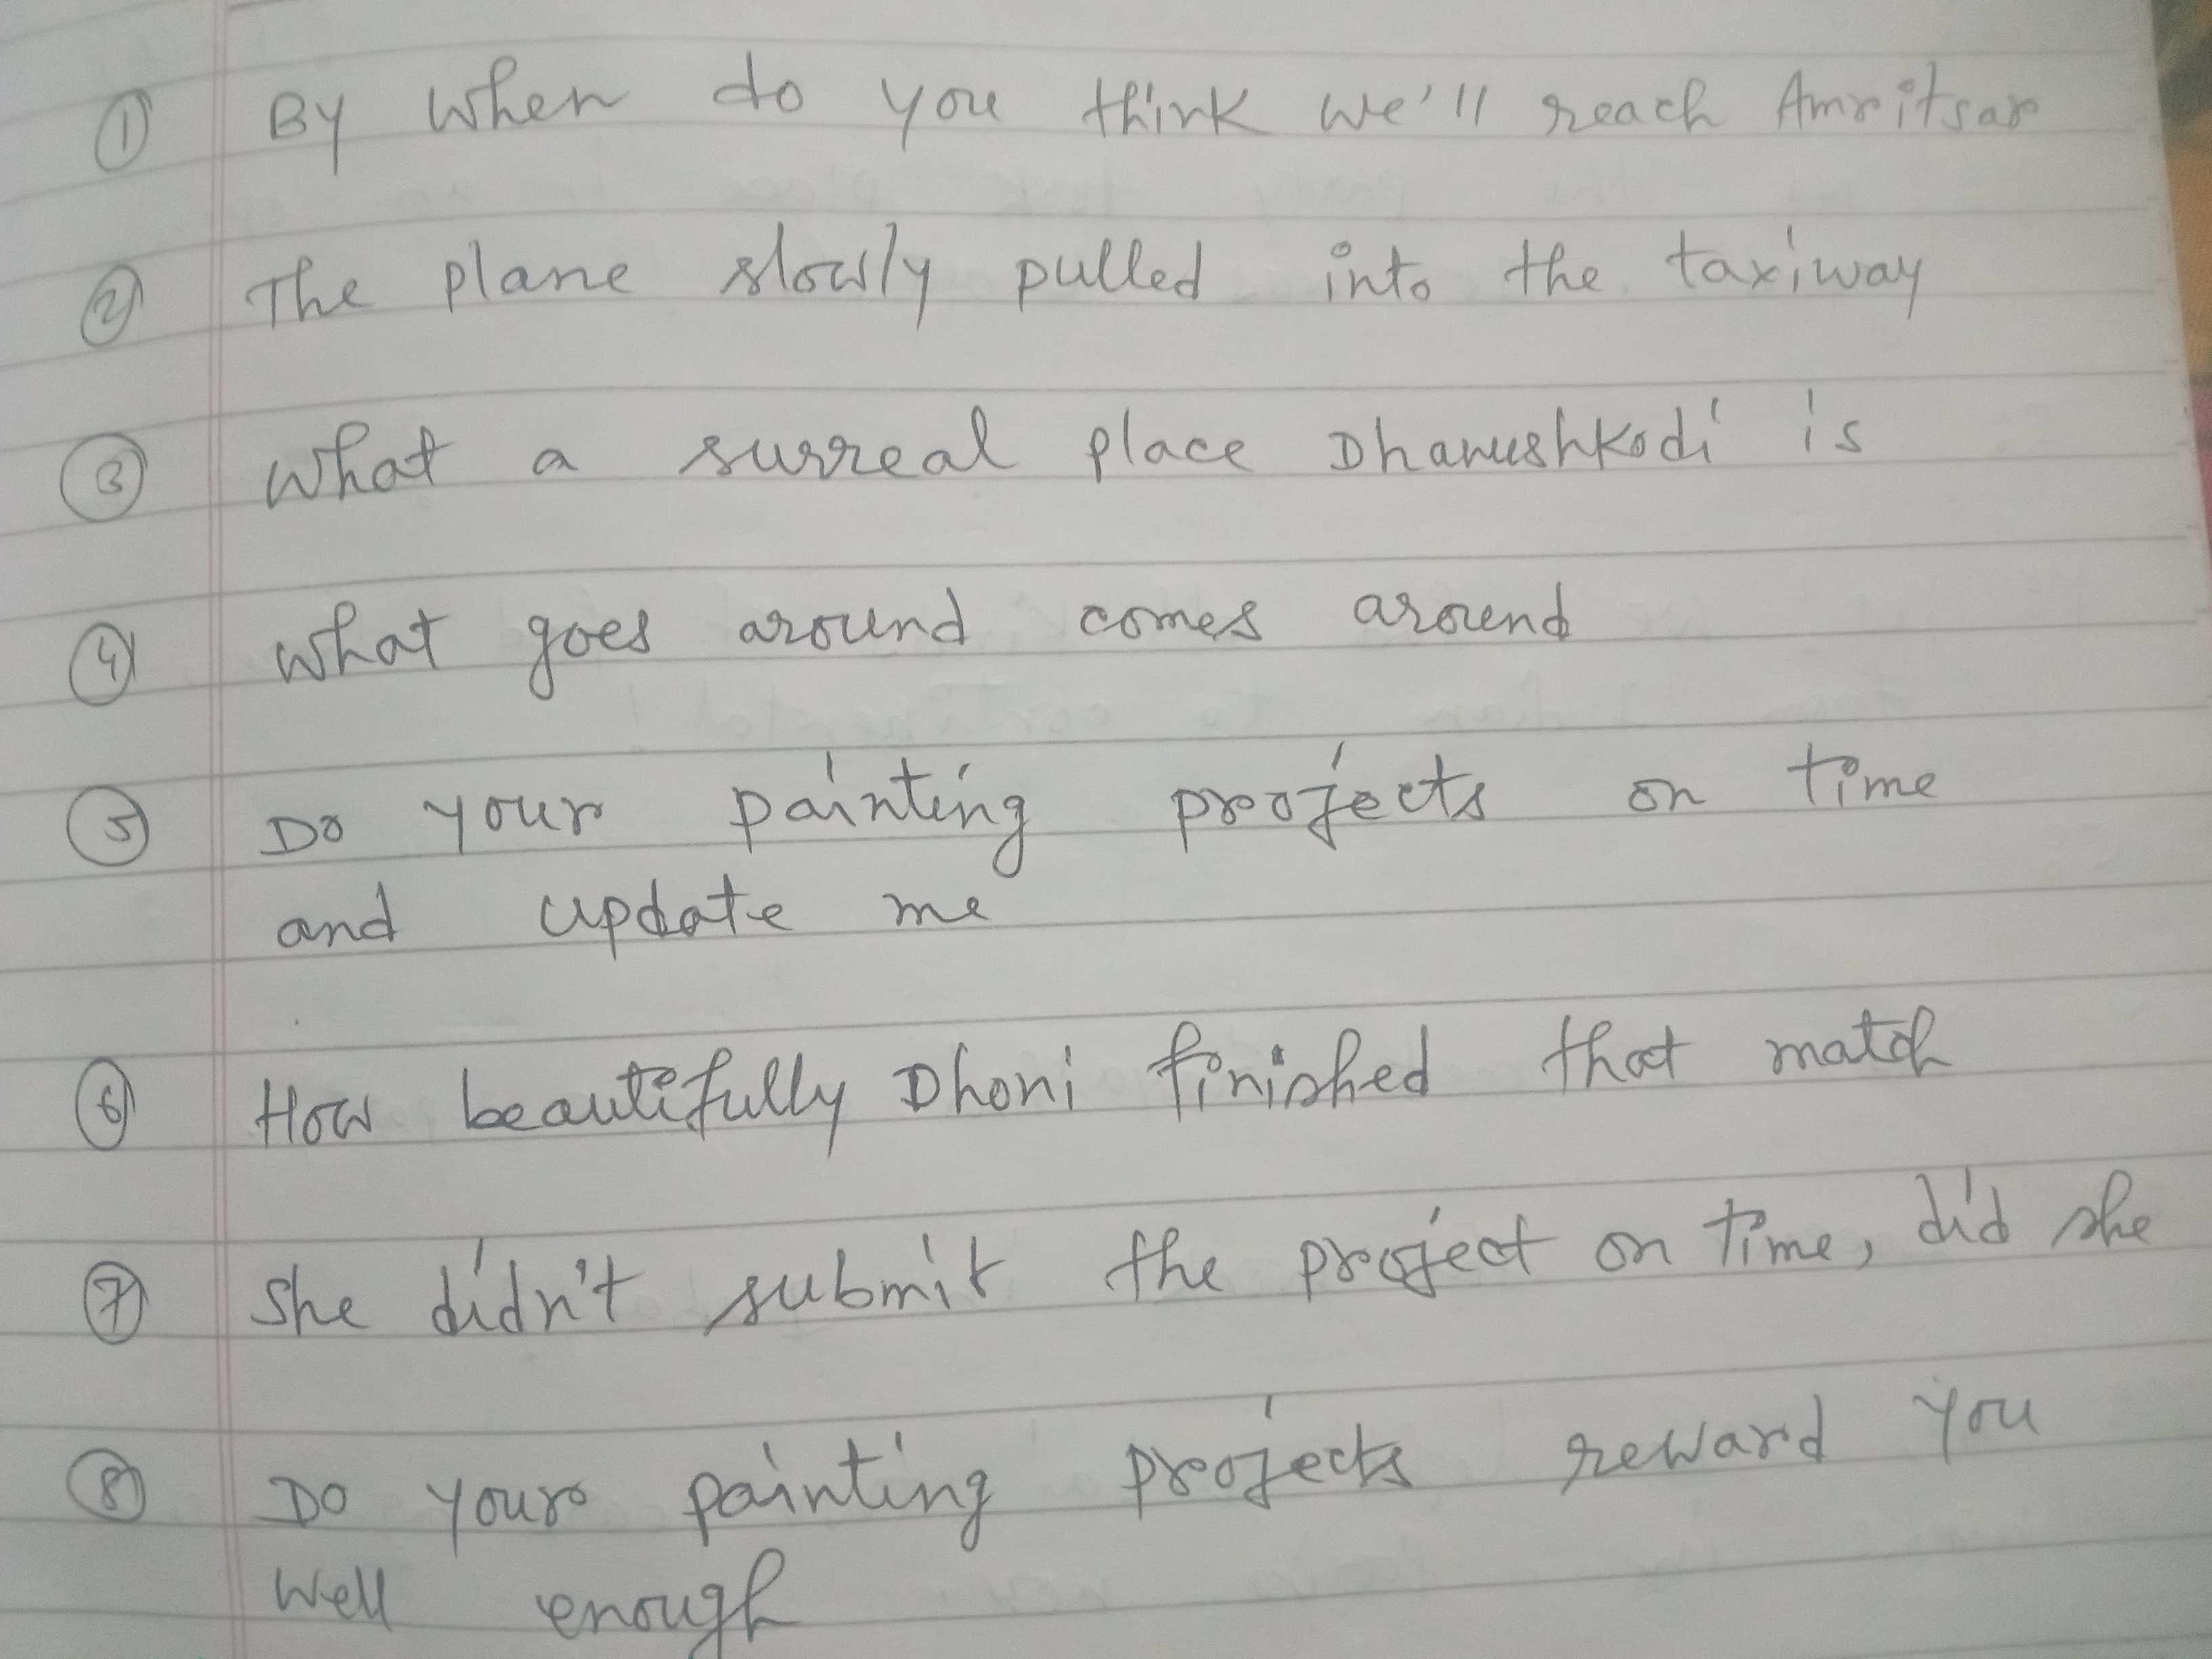 ① By when do you think we'll reach Amritsar
② The plane slowly pulled into the taxiway
③ What a surreal place Dhanushkodi is
④ What goes around comes around
⑤ Do your painting projects on time
and update me
⑥ How beautifully Dhoni finished that match
⑦ She didn't submit the project on time, did she
⑧ Do your painting projects reward you
well enough